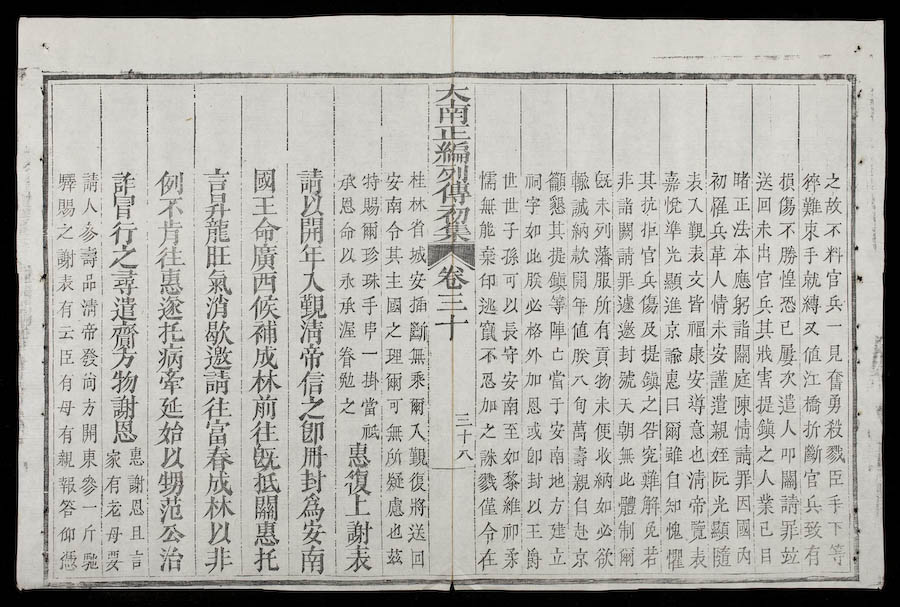 之故不料官兵一見奮勇殺戮臣手下等
猝難束手就縛又值江橋折斷官兵致有
損傷不勝惶恐已屢次遣人叩關請罪竝
送回未出官兵其戕害提鎭之人業已目
睹正法本應躬詣闕庭陳情請罪因國內
初罹兵革人情未安謹遣親姪阮光顯隨
表入覲表文皆福康安導意也清帝覽表
嘉悅準光顯進京諭惠曰爾雖自知愧懼
其抗拒官兵傷及提鎭之咎寃難解免若
非詣闕請罪遽邀封號天朝無此體制爾
旣未列藩服所有貢物未便收納如必欲
輸誠納欵開年值朕八旬萬壽親自赴京
籲懇其提鎭等陣亡當于安南地方建立
祠字如此朕必格外加恩或卽封以王爵
世世子孫可以長守安南至如黎維祁柔
懦無能棄印逃竄不忍加之誅戮僅令在
大南正編列傳初集 卷三十 三十八
桂林省城安插斷無乘爾入覲復將送回
安南令其主國之理爾可無所疑慮也茲
特賜爾珍珠手串一掛當祗
承恩命以永承渥眷勉之
惠復上謝表
請以開年入覲淸帝信之卽冊封爲安南
國王命廣西候補成林前往旣抵關惠托
言昇龍旺氣消歇邀請往富春成林以非
例不肯往惠遂托病牽延始以甥范公治
詐冒行之尋遣齎方物謝恩
惠謝恩且言
家有老母要
請人參壽品清帝發尚方開東參一斤馳
驛賜之謝表有云臣有母有親報答仰慿